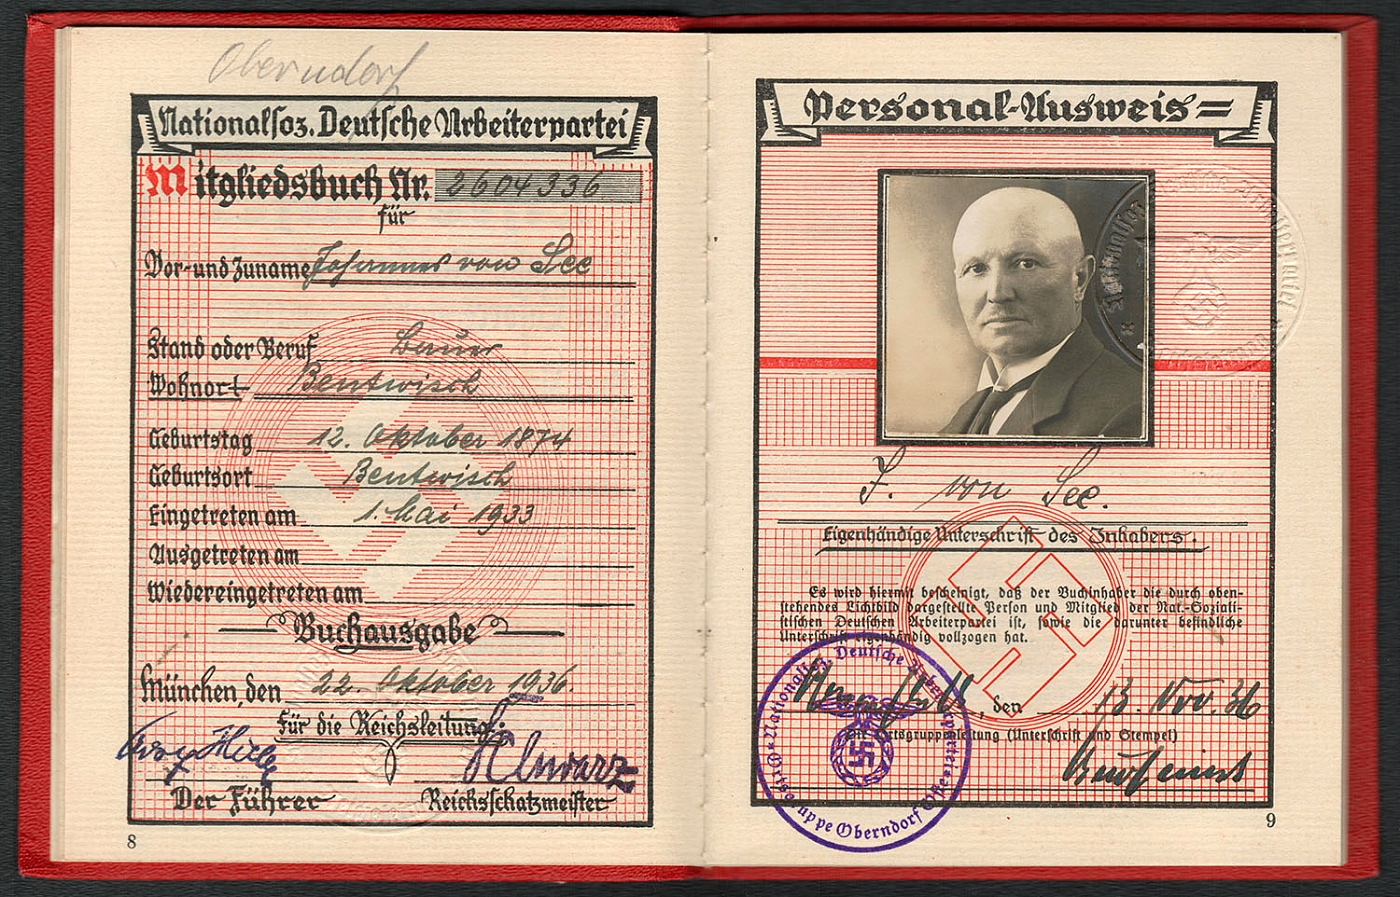 Oberndorf
Nationalsoz. Deutsche Arbeiterpartei
Mitgliedsbuch Nr. 2604336
für
Vor- und Zuname Johannes von See
Stand oder Beruf Bauer
Wohnort Bentwisch
Geburtstag 12. Oktober 1874
Geburtsort Bentwisch
Eingetreten am 1. Mai 1933
Ausgetreten am
Wiedereingetreten am
Buchausgabe
München, den 22. Oktober 1936.
Für die Reichsleitung:
Schwarz
Der Führer Reichsschatzmeister
8
Personal-Ausweis
J. von See.
Eigenhändige Unterschrift des Inhabers.
Es wird hiermit bescheinigt, daß der Buchinhaber die durch oben-
stehendes Lichtbild dargestellte Person und Mitglied der Nat.-Soziali-
stischen Deutschen Arbeiterpartei ist, sowie die darunter befindliche
Unterschrift eigenhändig vollzogen hat.
, den 13. Nov. 36
Die Ortsgruppenleitung (Unterschrift und Stempel)
Nationalsoz. Deutsche Arbeiterpartei
Ortsgruppe Oberndorf Oste
9